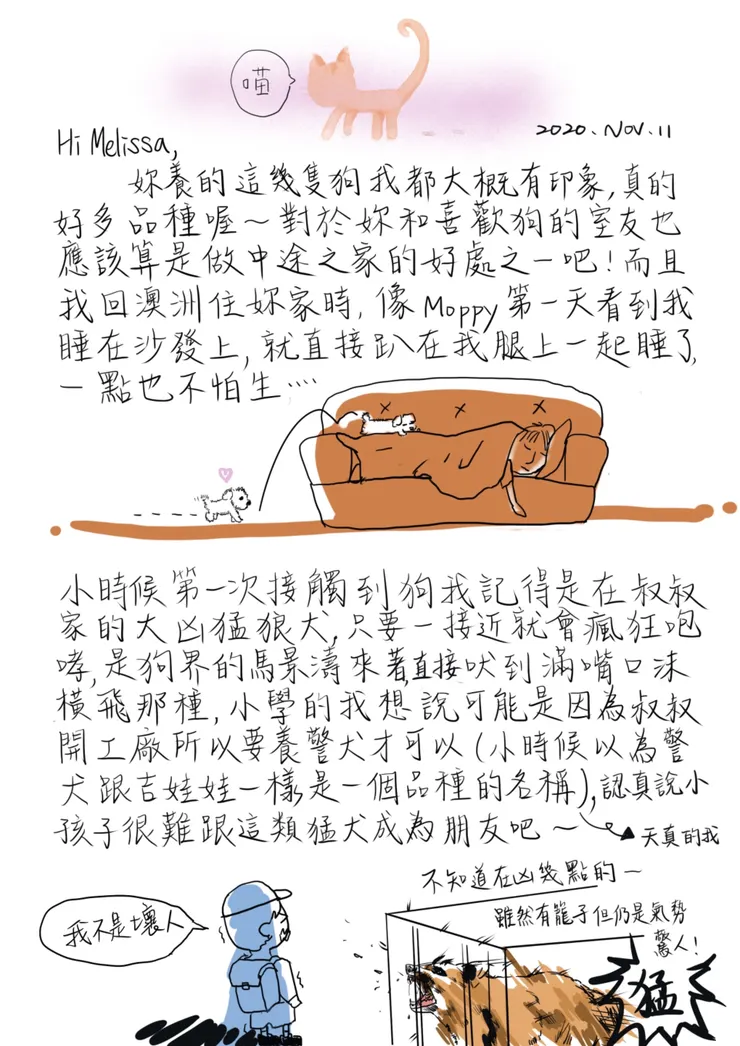 喵
2020. Nov. 11
Hi Melissa,
妳養的這幾隻狗我都大概有印象,真的
好多品種喔～對於妳和喜歡狗的室友也
應該算是做中途之家的好處之一吧!而且
我回澳洲住妳家時,像Moppy第一天看到我
睡在沙發上,就直接趴在我腿上一起睡了,
一點也不怕生….
小時候第一次接觸到狗我記得是在叔叔
家的大凶猛狼犬,只要一接近就會瘋狂咆
哮,是狗界的馬景濤來著,直接吠到滿嘴口沫
橫飛那種,小學的我想說可能是因為叔叔
開工廠所以要養警犬才可以(小時候以為警
犬跟吉娃娃一樣,是一個品種的名稱),認真說小
孩子很難跟這類猛犬成為朋友吧～
▲天真的我
不知道在凶幾點的～
雖然有籠子但仍是氣勢
驚人!
我不是壞人
猛